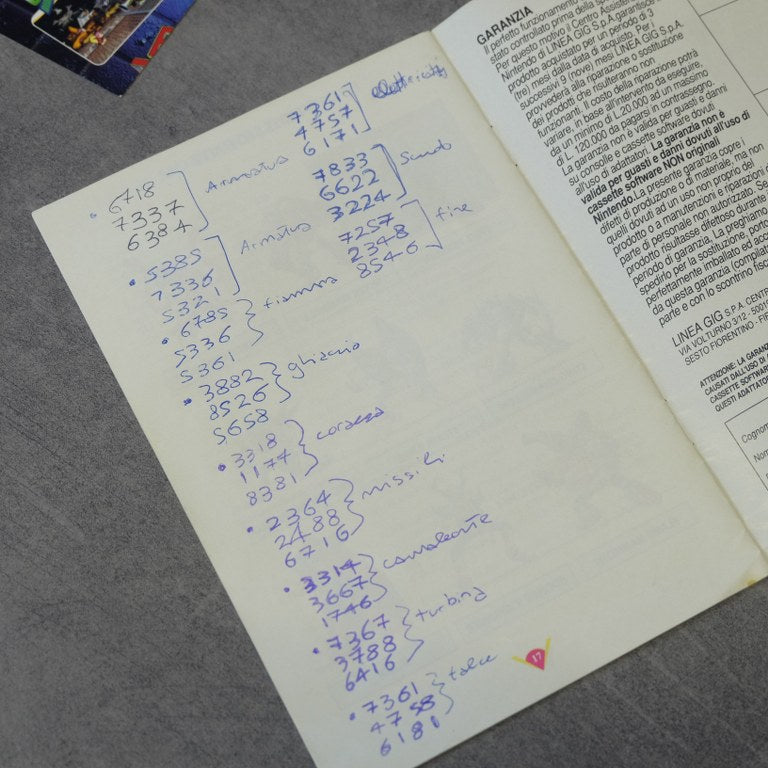 6718
7337
6384
Armatus
5385
7336
5321
Armatus
6785
5336
5361
fiamma
3882
8526
5658
ghiaccio
3318
1177
8381
corazza
2364
2488
6716
missili
3314
3667
1746
camaleonte
7367
3788
6416
turbina
7361
4758
6181
talce
7361
4757
6171
7833
6622
3224
7257
2348
8546
fine
17
GARANZIA
Il perfetto funzionamento
stato controllato prima della
Per questo motivo il Centro Assistenza
Nintendo di LINEA GIG S.P.A. garantisce il
prodotto acquistato per un periodo di 3
(tre) mesi dalla data di acquisto. Per i
successivi 9 (nove) mesi LINEA GIG S.p.A.
provvederà alla riparazione o sostituzione
dei prodotti che risulteranno non
funzionanti. Il costo della riparazione potrà
variare, in base all'intervento da eseguire,
da un minimo di L. 20.000 ad un massimo
di L. 120.000 da pagarsi in contrassegno.
La garanzia non è valida per guasti e danni
su consolle e cassette software dovuti
all'uso di adattatori. La garanzia non è
valida per guasti e danni dovuti all'uso di
cassette software NON originali
Nintendo. La presente garanzia copre i
difetti di produzione o di materiale, ma non
quelli dovuti ad un uso non proprio del
prodotto o a manutenzioni e riparazioni
parte di personale non autorizzato. Se
prodotto risultasse difettoso durante
periodo di garanzia, La preghiamo
spedirlo per la sostituzione,
perfettamente imballato ed
da questa garanzia
parte e con lo scontrino
LINEA GIG S.P.A.
VIA VOLTURNO 3/12 -
SESTO FIORENTINO -
ATTENZIONE: LA
CAUSATI DALL'USO DI
CASSETTE SOFTWARE
QUESTI
Cognome